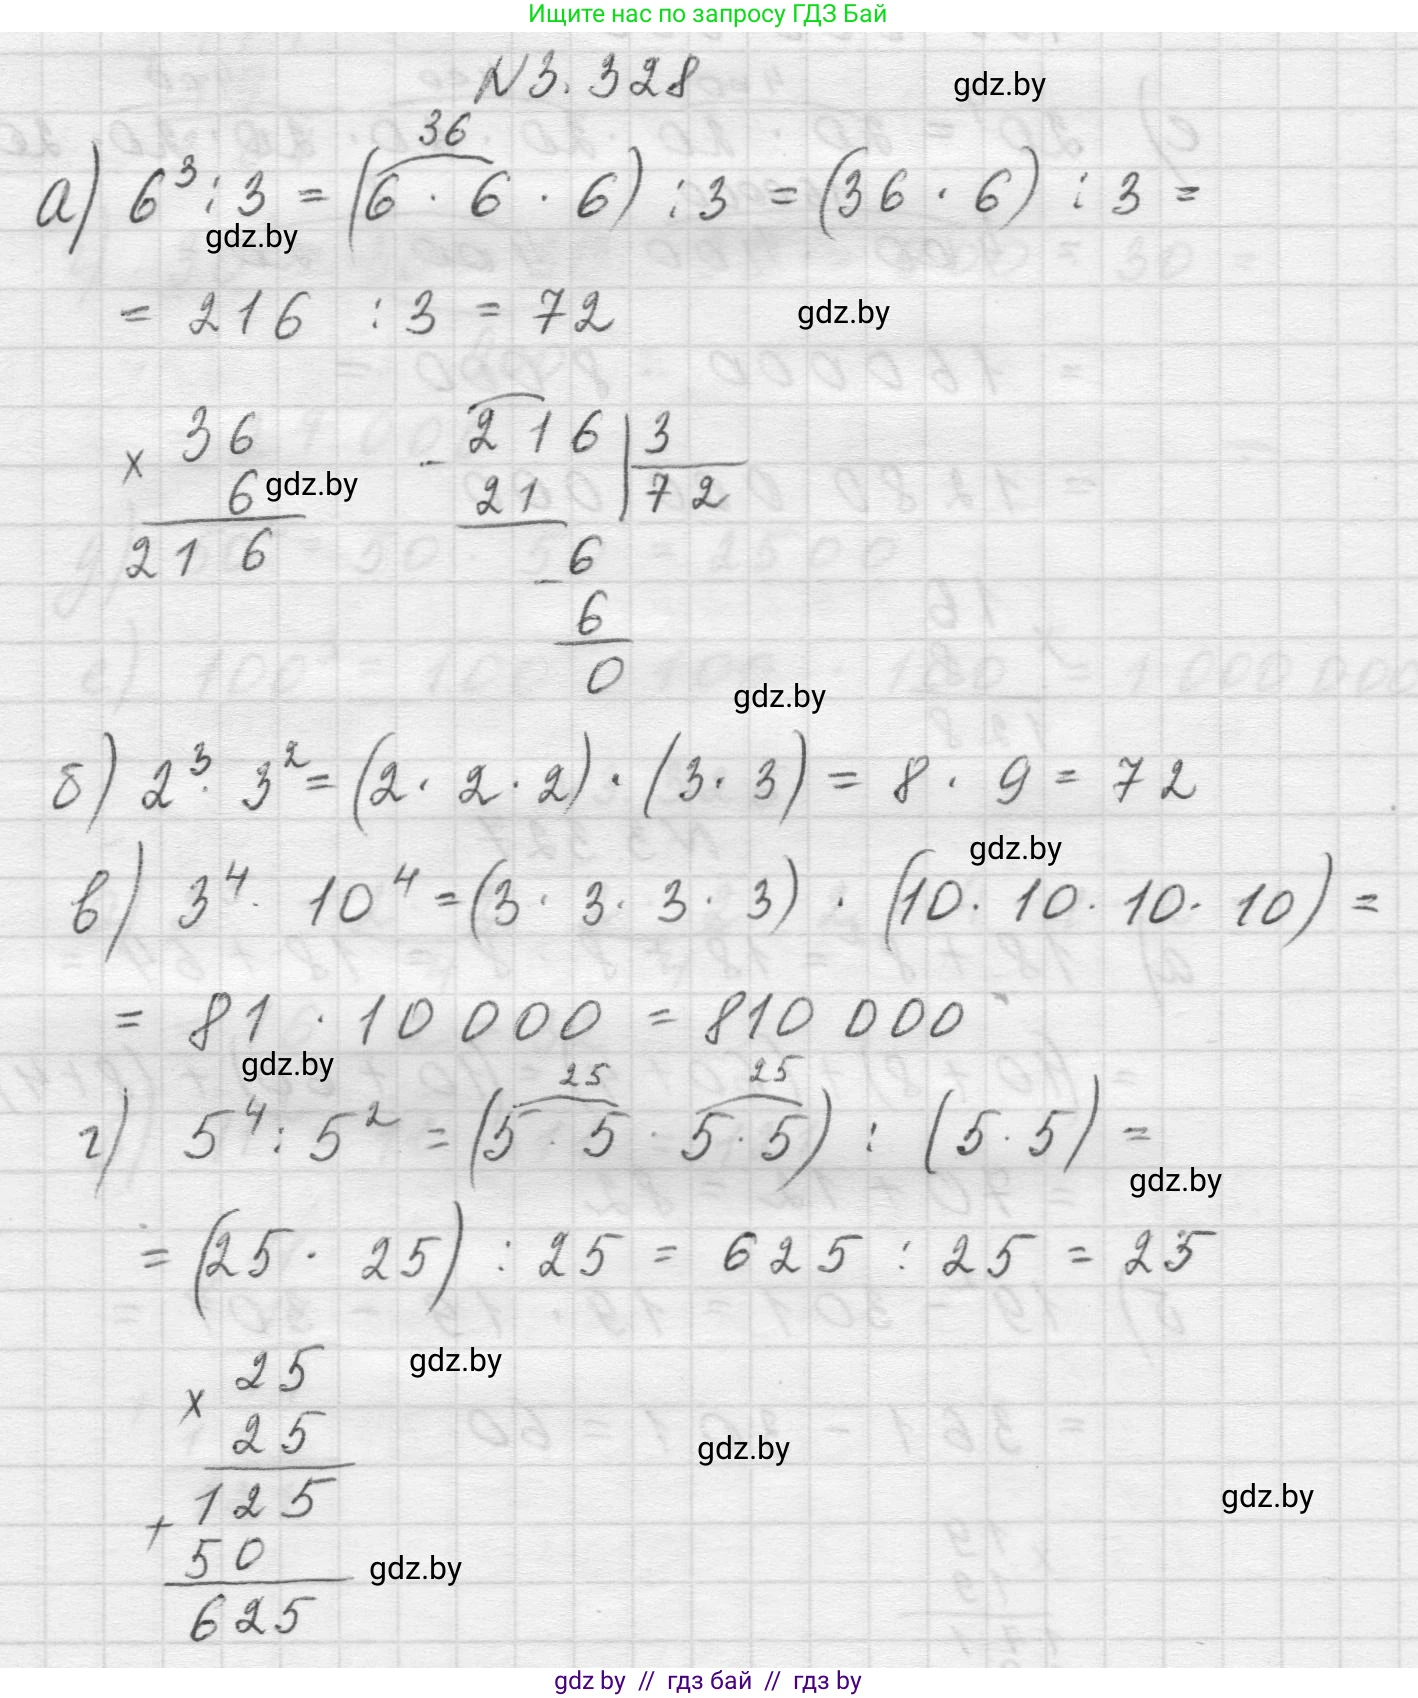 Ищите нас по запросу ГДЗ Бай
N3.328
gdz.by
36
а) 6³ : 3 = (6 · 6 · 6) : 3 = (36 · 6) : 3 =
gdz.by
= 216 : 3 = 72
gdz.by
× 36
6
216
gdz.by
- 216 | 3
21 | 72
- 6
6
0
gdz.by
б) 2³ · 3² = (2 · 2 · 2) · (3 · 3) = 8 · 9 = 72
gdz.by
в) 3⁴ · 10⁴ = (3 · 3 · 3 · 3) · (10 · 10 · 10 · 10) =
= 81 · 10 000 = 810 000
gdz.by
25 25
г) 5⁴ : 5² = (5 · 5 · 5 · 5) : (5 · 5) =
gdz.by
= (25 · 25) : 25 = 625 : 25 = 25
gdz.by
× 25
25
125
+ 50
625
gdz.by
gdz.by
gdz.by
gdz.by // гдз бай // гдз by